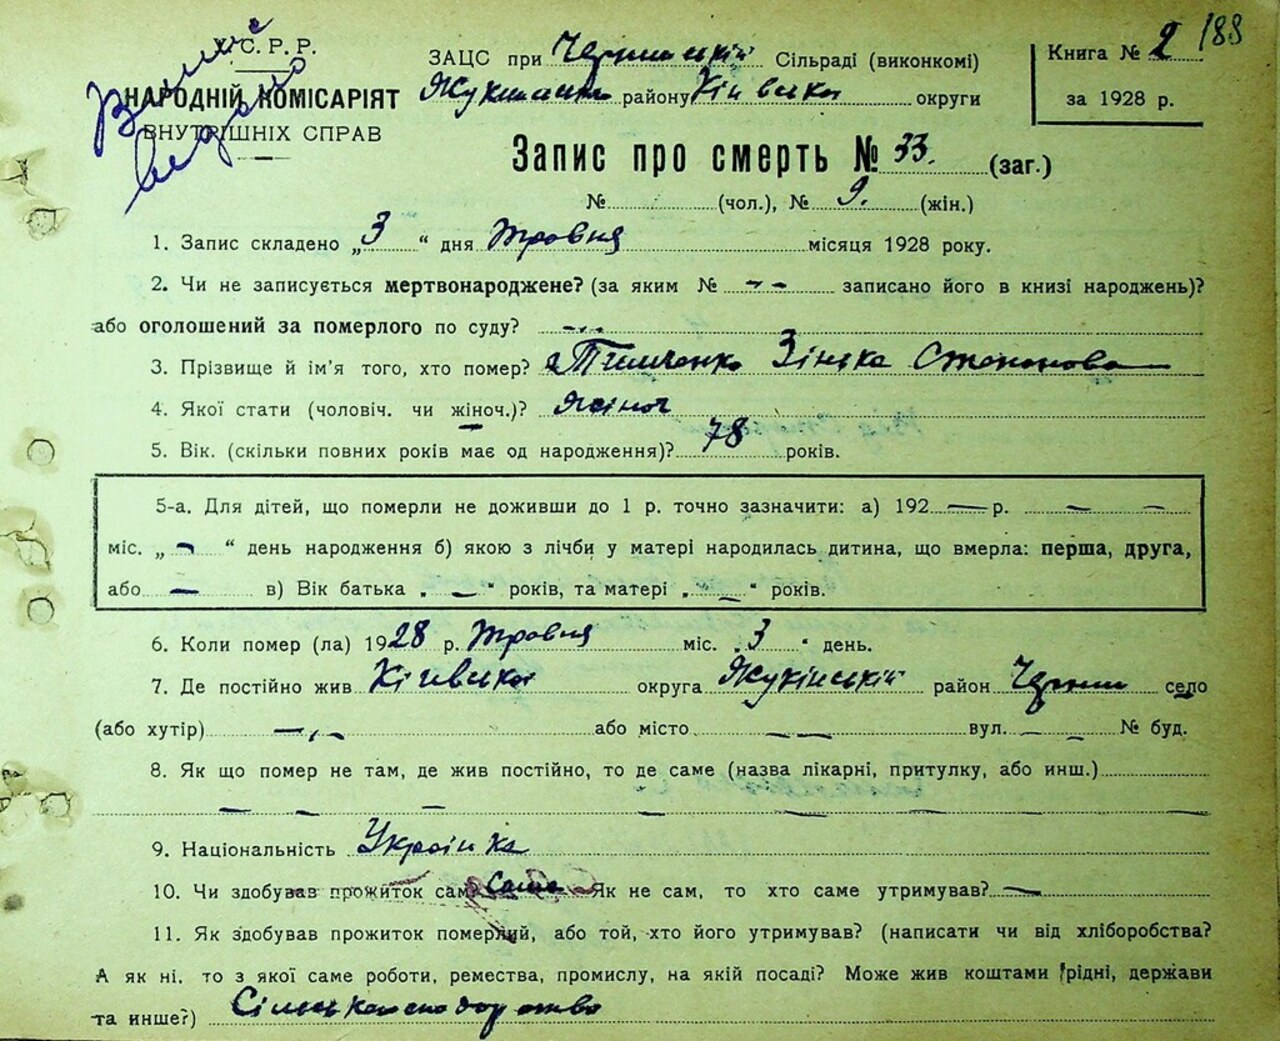 У.С.Р.Р.
НАРОДНІЙ КОМІСАРІЯТ
ВНУТРІШНІХ СПРАВ
ЗАЦС при Сільраді (виконкомі)
району Київська округи
Книга № 2 188
за 1928 р.
Запис про смерть № 33. (заг.)
№ (чол.), № 9. (жін.)
1. Запис складено „3“ дня травня місяця 1928 року.
2. Чи не записується мертвонароджене? (за яким № - - записано його в книзі народжень)?
або оголошений за померлого по суду?
3. Прізвище й ім'я того, хто помер? Тимченко Зінька Степанова
4. Якої стати (чоловіч. чи жіноч.)? жіноч
5. Вік. (скільки повних років має од народження)? 78 років.
5-а. Для дітей, що померли не доживши до 1 р. точно зазначити: а) 192 — р. — —
міс. „ - “ день народження б) якою з лічби у матері народилась дитина, що вмерла: перша, друга,
або — в) Вік батька „ — “ років, та матері „ — “ років.
6. Коли помер (ла) 1928 р. травня міс. „3“ день.
7. Де постійно жив Київська округа Жукінській район Чернин село
(або хутір) або місто — — вул. — — № буд.
8. Як що помер не там, де жив постійно, то де саме (назва лікарні, притулку, або инш.)
— — — — — —
9. Національність Українка
10. Чи здобував прожиток сам? Сама Як не сам, то хто саме утримував? —
11. Як здобував прожиток померлий, або той, хто його утримував? (написати чи від хліборобства?
А як ні, то з якої саме роботи, ремества, промислу, на якій посаді? Може жив коштами рідні, держави
та инше?) Сільськогосподарство